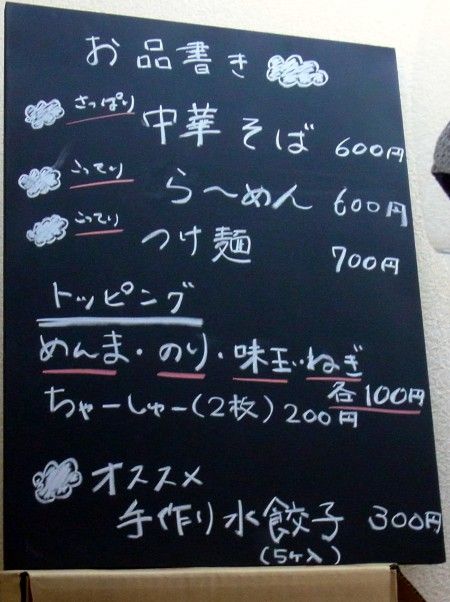 お品書き
さっぱり 中華そば 600円
こってり らーめん 600円
こってり つけ麺 700円
トッピング
めんま・のり・味玉・ねぎ
各100円
ちゃーしゅー(2枚)200円
オススメ
手作り水餃子 300円
(5ヶ入)